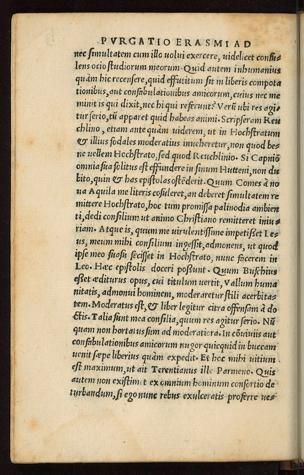 PVRGATIO ERASMI AD
nec simultatem cum illo volui exercere, uidelicet consu-
lens ocio studiorum meorum. Quid autem inhumanius
quàm hic recensere, quid effutitum sit in liberis compota
tionibus, aut confabulationibus amicorum, cuius nec me
minit is qui dixit, nec hi qui referunt? Verū ubi res agi-
tur serio, tū apparet quid habeas animi. Scripseram Reu
chlino, etiam ante quàm uiderem, ut in Hochstratum
& illius sodales moderatius inueheretur, non quod be-
ne uellem Hochstrato, sed quod Reuchlinio. Si Capniō
omnia sua solitus est effundere in sinum Hutteni, non du
bito, quin & has epistolas ostēderit. Quum Comes à no
ua Aquila me literis cōsuleret, an deberet simultatem re
mittere Hochstrato, hoc tum promissa palinodia ambien
ti, dedi consilium ut animo Christiano remitteret iniu-
riam. Atque is, quum me uirulentissime impetisset Le-
us, meum mihi consilium ingessit, admonens, ut quod
ipse meo suasu fecisset in Hochstrato, nunc facerem in
Leo. Hæc epistolis doceri possunt. Quum Buschius
esset æditurus opus, cui titulum uertit, Vallum huma
nitatis, admonui hominem, moderaretur stili acerbita-
tem. Moderatus est, & liber legitur citra offensam à do
ctis. Talia sunt mea consilia, quum res agitur serio. Nū
quam non hortatus sum ad moderatiora. In cōuiuijs aut
confabulationibus amicorum nugor quicquid in buccam
uenit sæpe liberius quàm expedit. Et hoc mihi uitium
est maximum, ut ait Terentianus ille Parmeno. Quis
autem non existimet ex omnium hominum consortio de
turbandum, si ego nunc rebus exulceratis proferre ues-